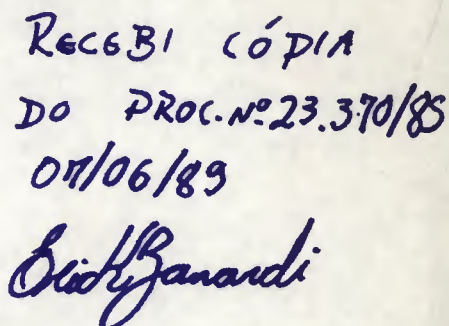 RECEBI CÓPIA
DO PROC. Nº 23.370/85
07/06/89
Zanardi